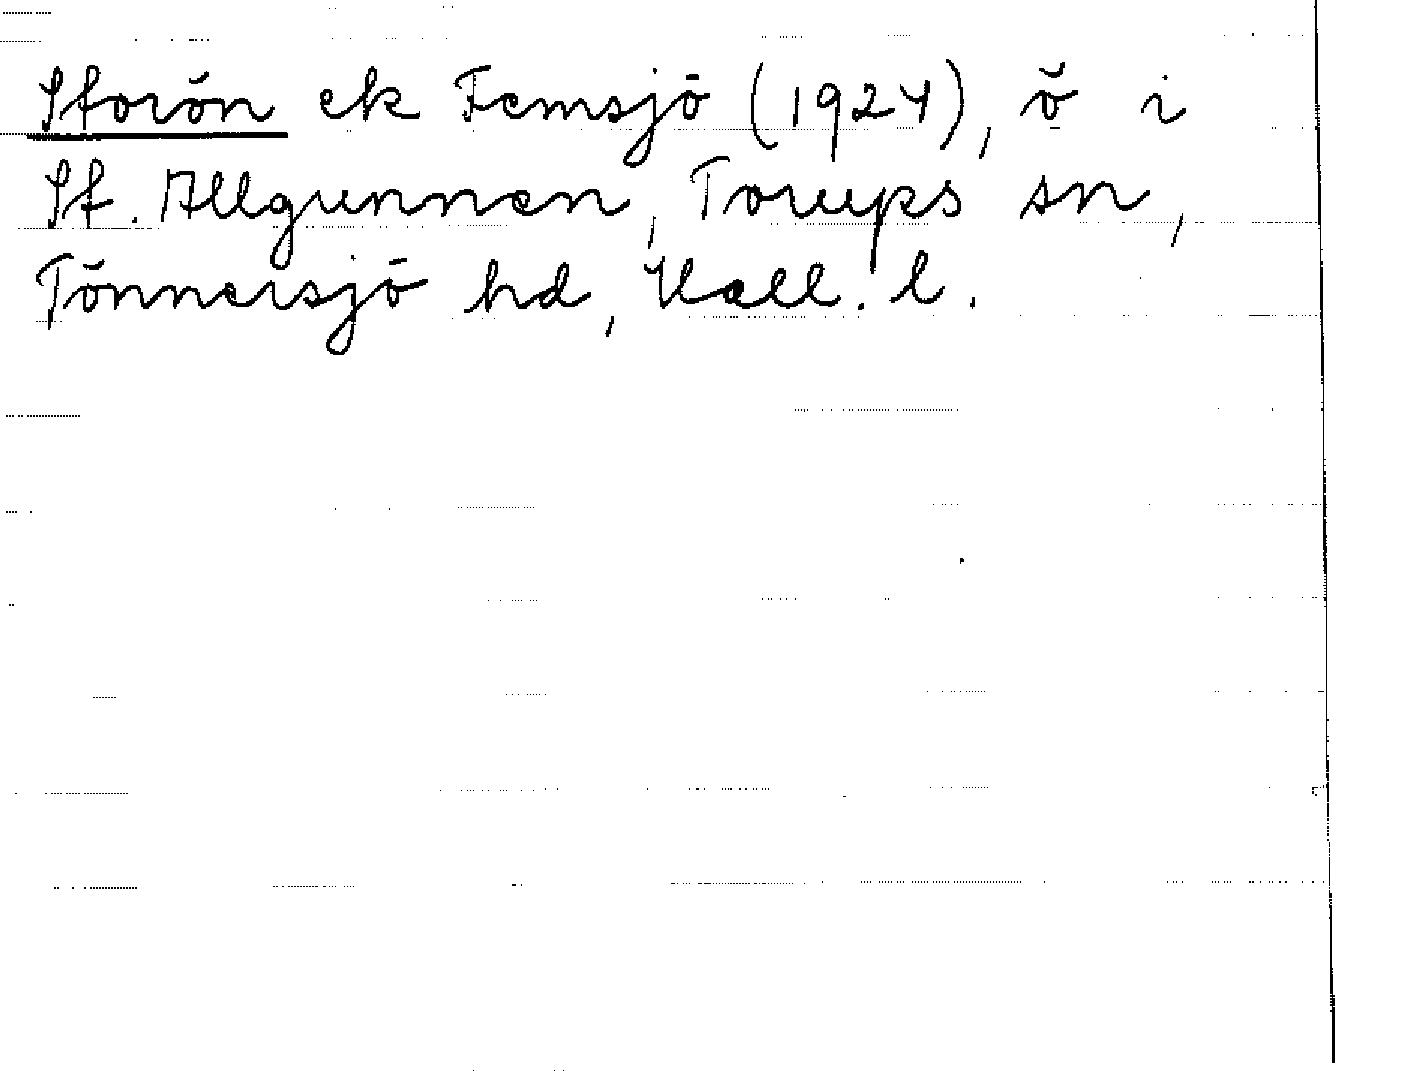 Storön ek Femsjö (1924), ö i
St. Allgunnen, Torups sn,
Tönnersjö hd, Hall. l.